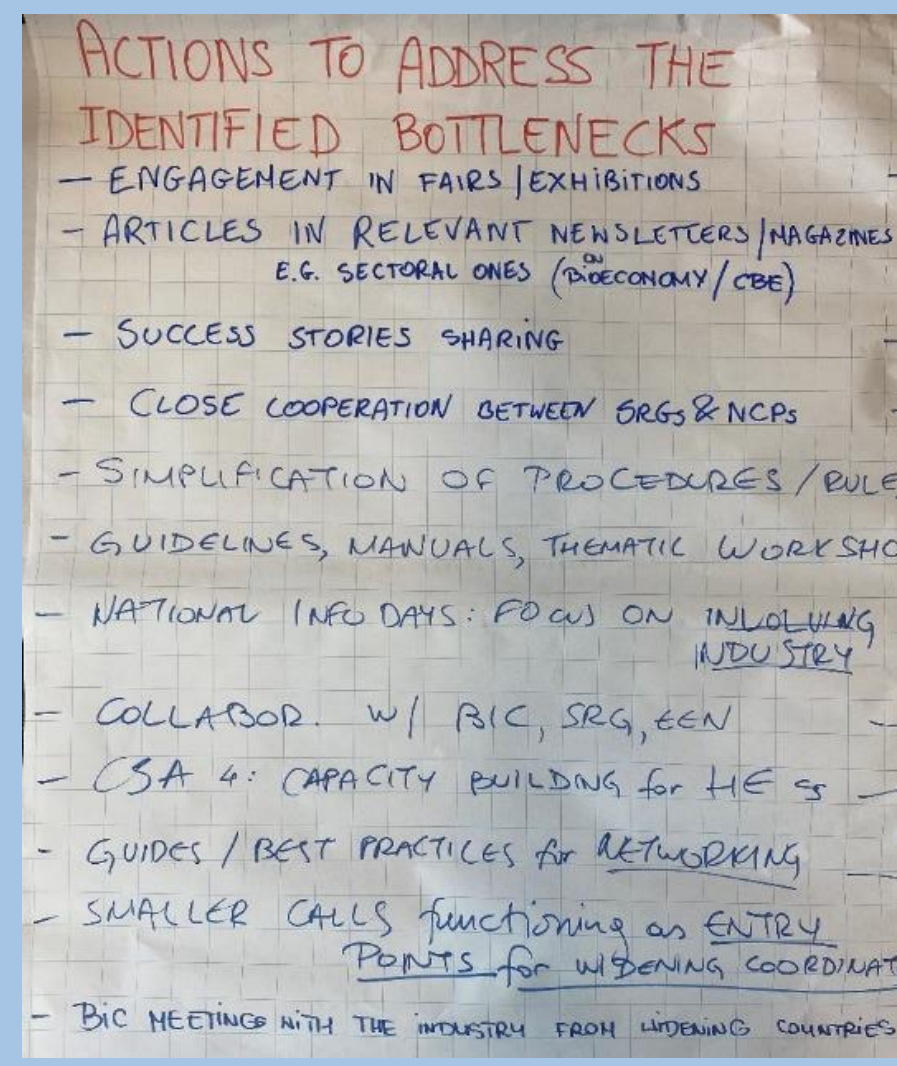 ACTIONS TO ADDRESS THE
IDENTIFIED BOTTLENECKS
- ENGAGEMENT IN FAIRS/EXHIBITIONS
- ARTICLES IN RELEVANT NEWSLETTERS/MAGAZINES
E.G. SECTORAL ONES (ON BIOECONOMY/CBE)
- SUCCESS STORIES SHARING
- CLOSE COOPERATION BETWEEN SRGs & NCPs
- SIMPLIFICATION OF PROCEDURES/RULE
- GUIDELINES, MANUALS, THEMATIC WORKSHO
- NATIONAL INFO DAYS: FOCUS ON INVOLVING
INDUSTRY
- COLLABOR. W/ BIC, SRG, EEN
- CSA 4: CAPACITY BUILDING for HE
- GUIDES / BEST PRACTICES for NETWORKING
- SMALLER CALLS functioning as ENTRY
POINTS for WIDENING COORDINAT
- BIC MEETINGS WITH THE INDUSTRY FROM WIDENING COUNTRIES